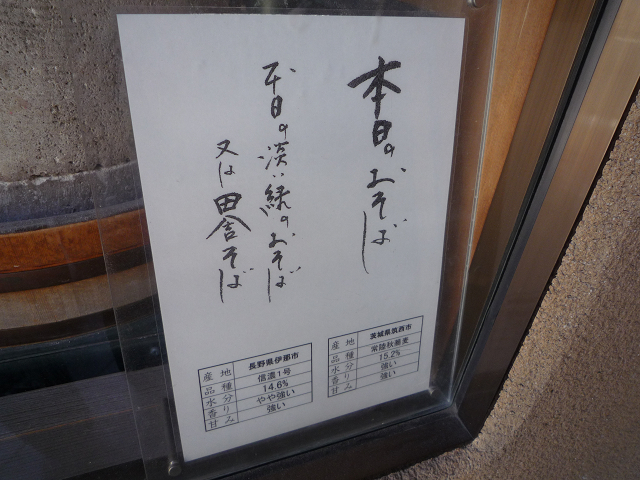 本日のおそば
平日の淡い緑のおそば
又は田舎そば
産地 茨城県筑西市
品種 常陸秋蕎麦
水分 15.2%
香り 強い
甘み 強い
産地 長野県伊那市
品種 信濃1号
水分 14.6%
香り やや強い
甘み 強い